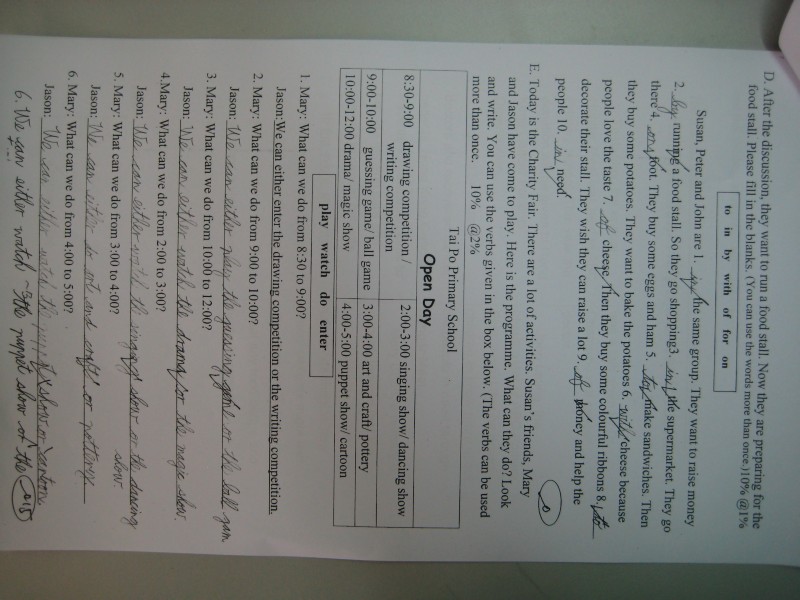 D. After the discussion, they want to run a food stall. Now they are preparing for the
food stall. Please fill in the blanks. (You can use the words more than once.)10% @1%
to in by with of for on
Susan, Peter and John are 1. the same group. They want to raise money
2. by running a food stall. So they go shopping3. in the supermarket. They go
there 4. on foot. They buy some eggs and ham 5. to make sandwiches. Then
they buy some potatoes. They want to bake the potatoes 6. with cheese because
people love the taste 7. of cheese. Then they buy some colourful ribbons 8. to
decorate their stall. They wish they can raise a lot 9. of money and help the
people 10. in need.
E. Today is the Charity Fair. There are a lot of activities. Susan's friends, Mary
and Jason have come to play. Here is the programme. What can they do? Look
and write. You can use the verbs given in the box below. (The verbs can be used
more than once. 10% @2%
Tai Po Primary School
Open Day
8:30-9:00 drawing competition / writing competition 2:00-3:00 singing show/ dancing show
9:00-10:00 guessing game/ ball game 3:00-4:00 art and craft/ pottery
10:00-12:00 drama/ magic show 4:00-5:00 puppet show/ cartoon
play watch do enter
1. Mary: What can we do from 8:30 to 9:00?
Jason:We can either enter the drawing competition or the writing competition.
2. Mary: What can we do from 9:00 to 10:00?
Jason: We can either play the guessing game or the ball gam
3. Mary: What can we do from 10:00 to 12:00?
Jason: We can either watch the drama or the magic show.
4.Mary: What can we do from 2:00 to 3:00?
Jason: We can either watch the singing show or the dancing
show.
5. Mary: What can we do from 3:00 to 4:00?
Jason: We can either do art and craft or pottery
6. Mary: What can we do from 4:00 to 5:00?
Jason: We can either watch the puppet show or cartoon
6. We can either watch the puppet show or the